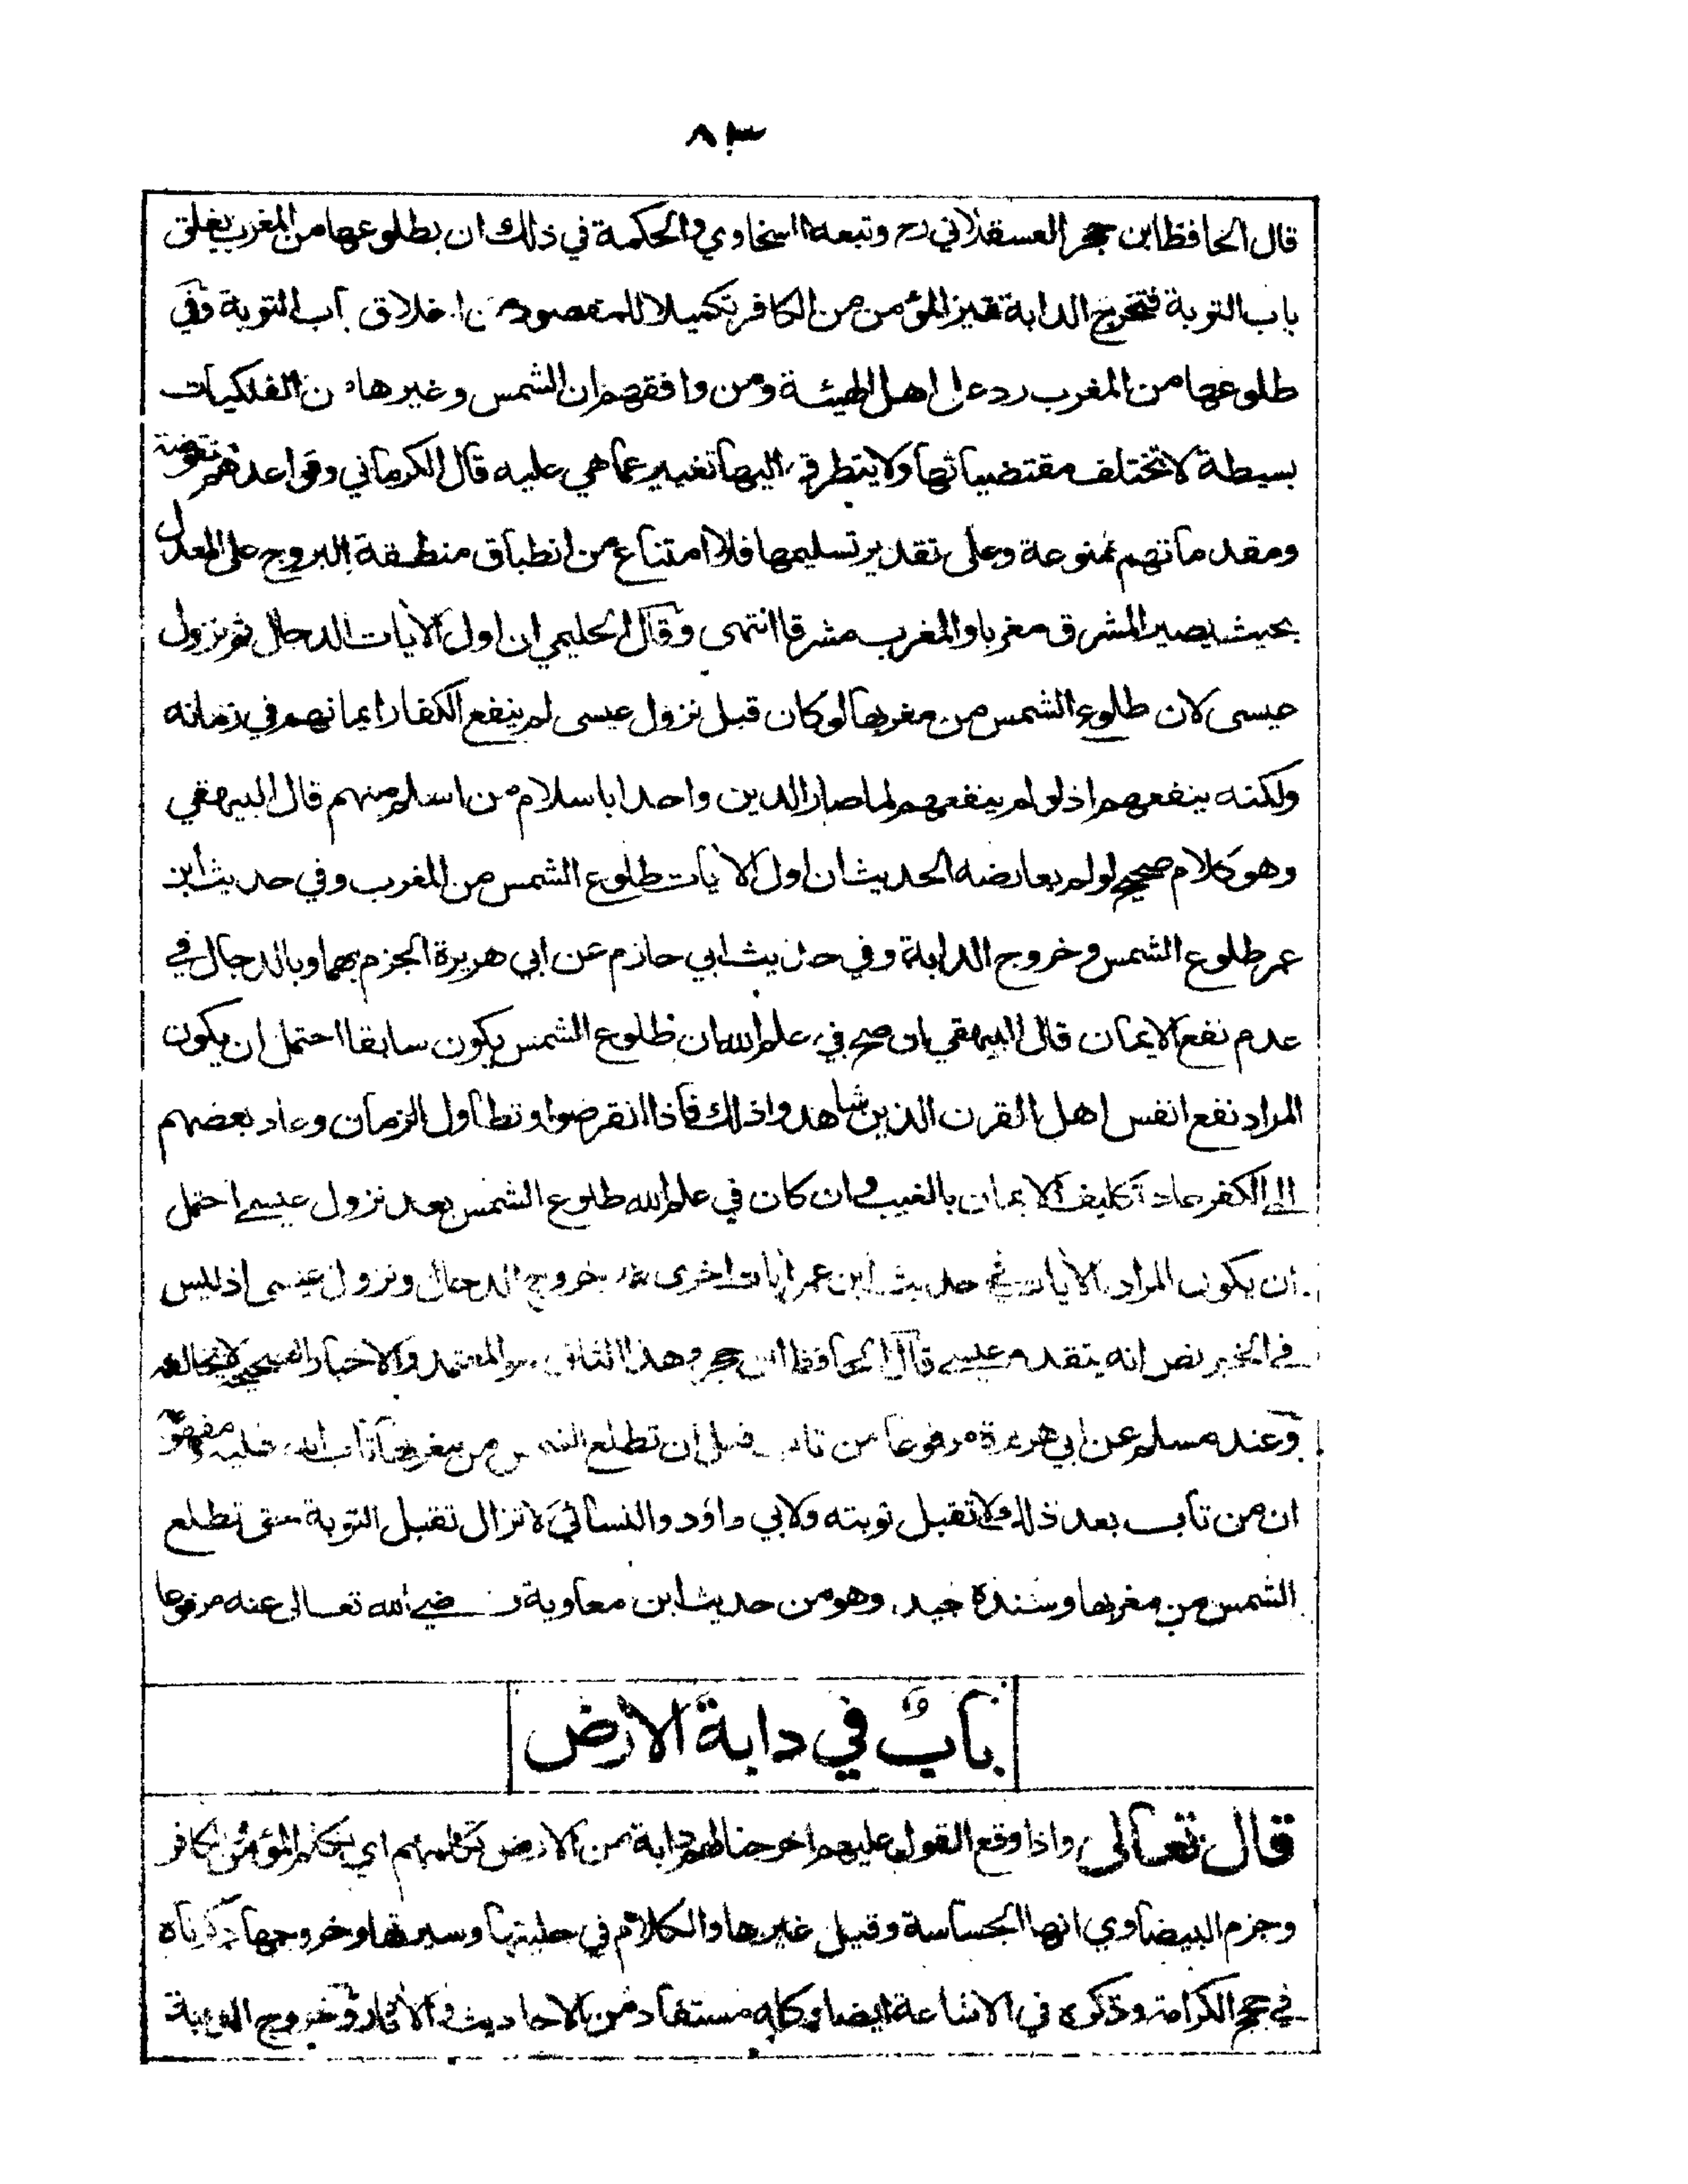 ٨٣
قال الحافظ ابن حجر العسقلاني رح وتبعه السخاوي والحكمة في ذلك ان بطلوعها من المغرب يغلق
باب التوبة فتخرج الدابة تميز المؤمن من الكافر تكميلا للمقصود من اغلاق باب التوبة وفي
طلوعها من المغرب رد على اهل الهيئة ومن وافقهم ان الشمس وغيرها من الفلكيات
بسيطة لا تختلف مقتضياتها ولا يتطرق اليها تغيير عما هي عليه قال الكرماني وقواعدهم منقوضة
ومقدماتهم ممنوعة وعلى تقدير تسليمها فلا امتناع من انطباق منطقة البروج على المعدل
بحيث يصير المشرق مغربا والمغرب مشرقا انتهى وقال الحليمي ان اول الآيات الدجال ثم نزول
عيسى لان طلوع الشمس من مغربها لو كان قبل نزول عيسى لم ينفع الكفار ايمانهم في زمانه
ولكنه ينفعهم اذ لو لم ينفعهم لما صار الدين واحدا باسلام من اسلم منهم قال البيهقي
وهو كلام صحيح لو لم يعارضه الحديث ان اول الآيات طلوع الشمس من المغرب وفي حديث ابن
عمر طلوع الشمس وخروج الدابة وفي حديث ابي حازم عن ابي هريرة الجزم بهما وبالدجال في
عدم نفع الايمان قال البيهقي ان صح في علم الله ان طلوع الشمس يكون سابقا احتمل ان يكون
المراد نفع انفس اهل القرن الذين شاهدوا ذلك فاذا انقرضوا وتطاول الزمان وعاد بعضهم
الى الكفر عاد تكليف الايمان بالغيب وان كان في علم الله طلوع الشمس بعد نزول عيسى احتمل
ان يكون المراد بالآيات في حديث ابن عمر آيات اخرى غير خروج الدجال ونزول عيسى اذ ليس
في الخبر نص انه يتقدم عيسى قال الحافظ ابن حجر وهذا الثاني هو المعتمد والاخبار الصحيحة لا تخالفه
وعند مسلم عن ابي هريرة مرفوعا من تاب قبل ان تطلع الشمس من مغربها تاب الله عليه فمفهومه
ان من تاب بعد ذلك لا تقبل توبته ولابي داؤد والنسائي لا تزال تقبل التوبة حتى تطلع
الشمس من مغربها وسنده جيد وهو من حديث ابن معاوية رضي الله تعالى عنه مرفوعا
باب في دابة الارض
قال تعالى واذا وقع القول عليهم اخرجنا لهم دابة من الارض تكلمهم اي تكلم المؤمن والكافر
وجزم البيضاوي انها الجساسة وقيل غيرها والكلام في حليتها وسيرتها وخروجها ذكرناه
في حجج الكرامة وذكره في الاشاعة ايضا وكله مستفاد من الاحاديث والآثار وخروج الدابة